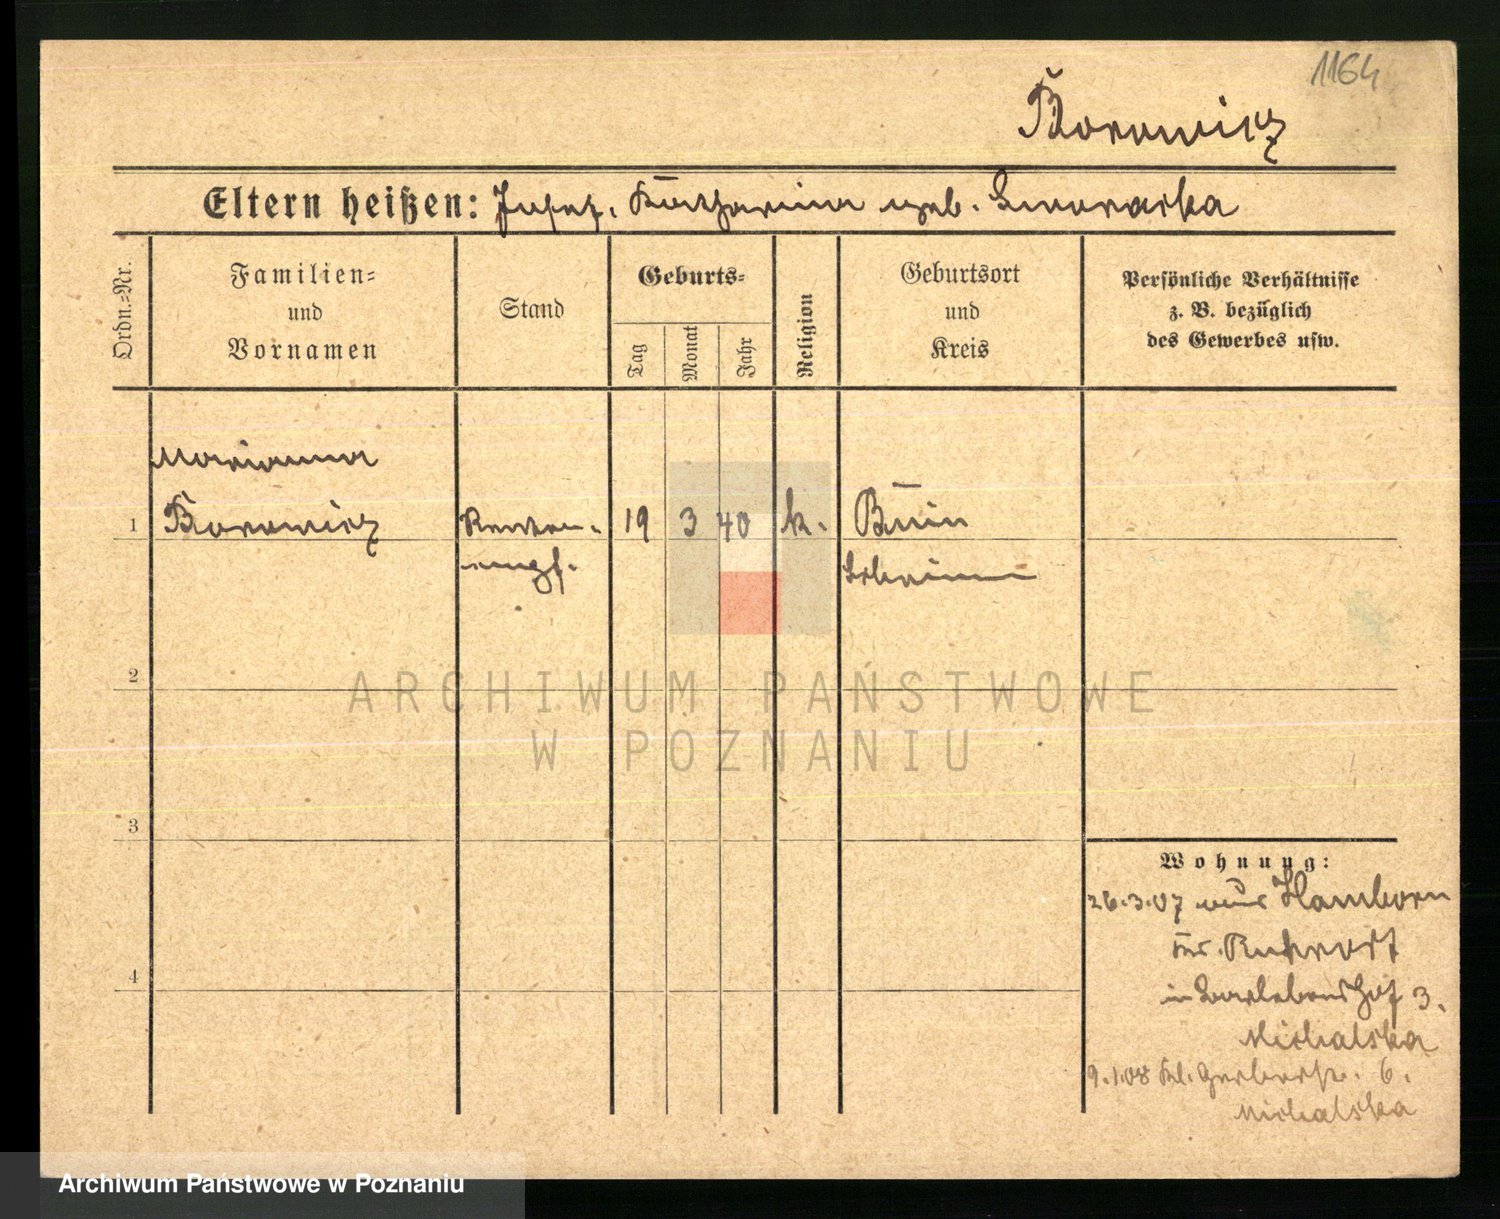 1164
Borowicz
Eltern heißen: Josef, Katharina geb.
Ordn.=Nr.
Familien=
und
Vornamen
Stand
Geburts=
Tag
Monat
Jahr
Religion
Geburtsort
und
Kreis
Persönliche Verhältnisse
z. B. bezüglich
des Gewerbes usw.
Marianna
1 Borowicz Renten- 19 3 40 k. Bnin
empf. Schrimm
2
3
4
Wohnung:
26.3.07 aus Hamborn
Kr. Ruhrort
in 3.
Michalska
9.1.08 Kl. Gerberstr. 6.
Michalska
ARCHIWUM PAŃSTWOWE
W POZNANIU
Archiwum Państwowe w Poznaniu